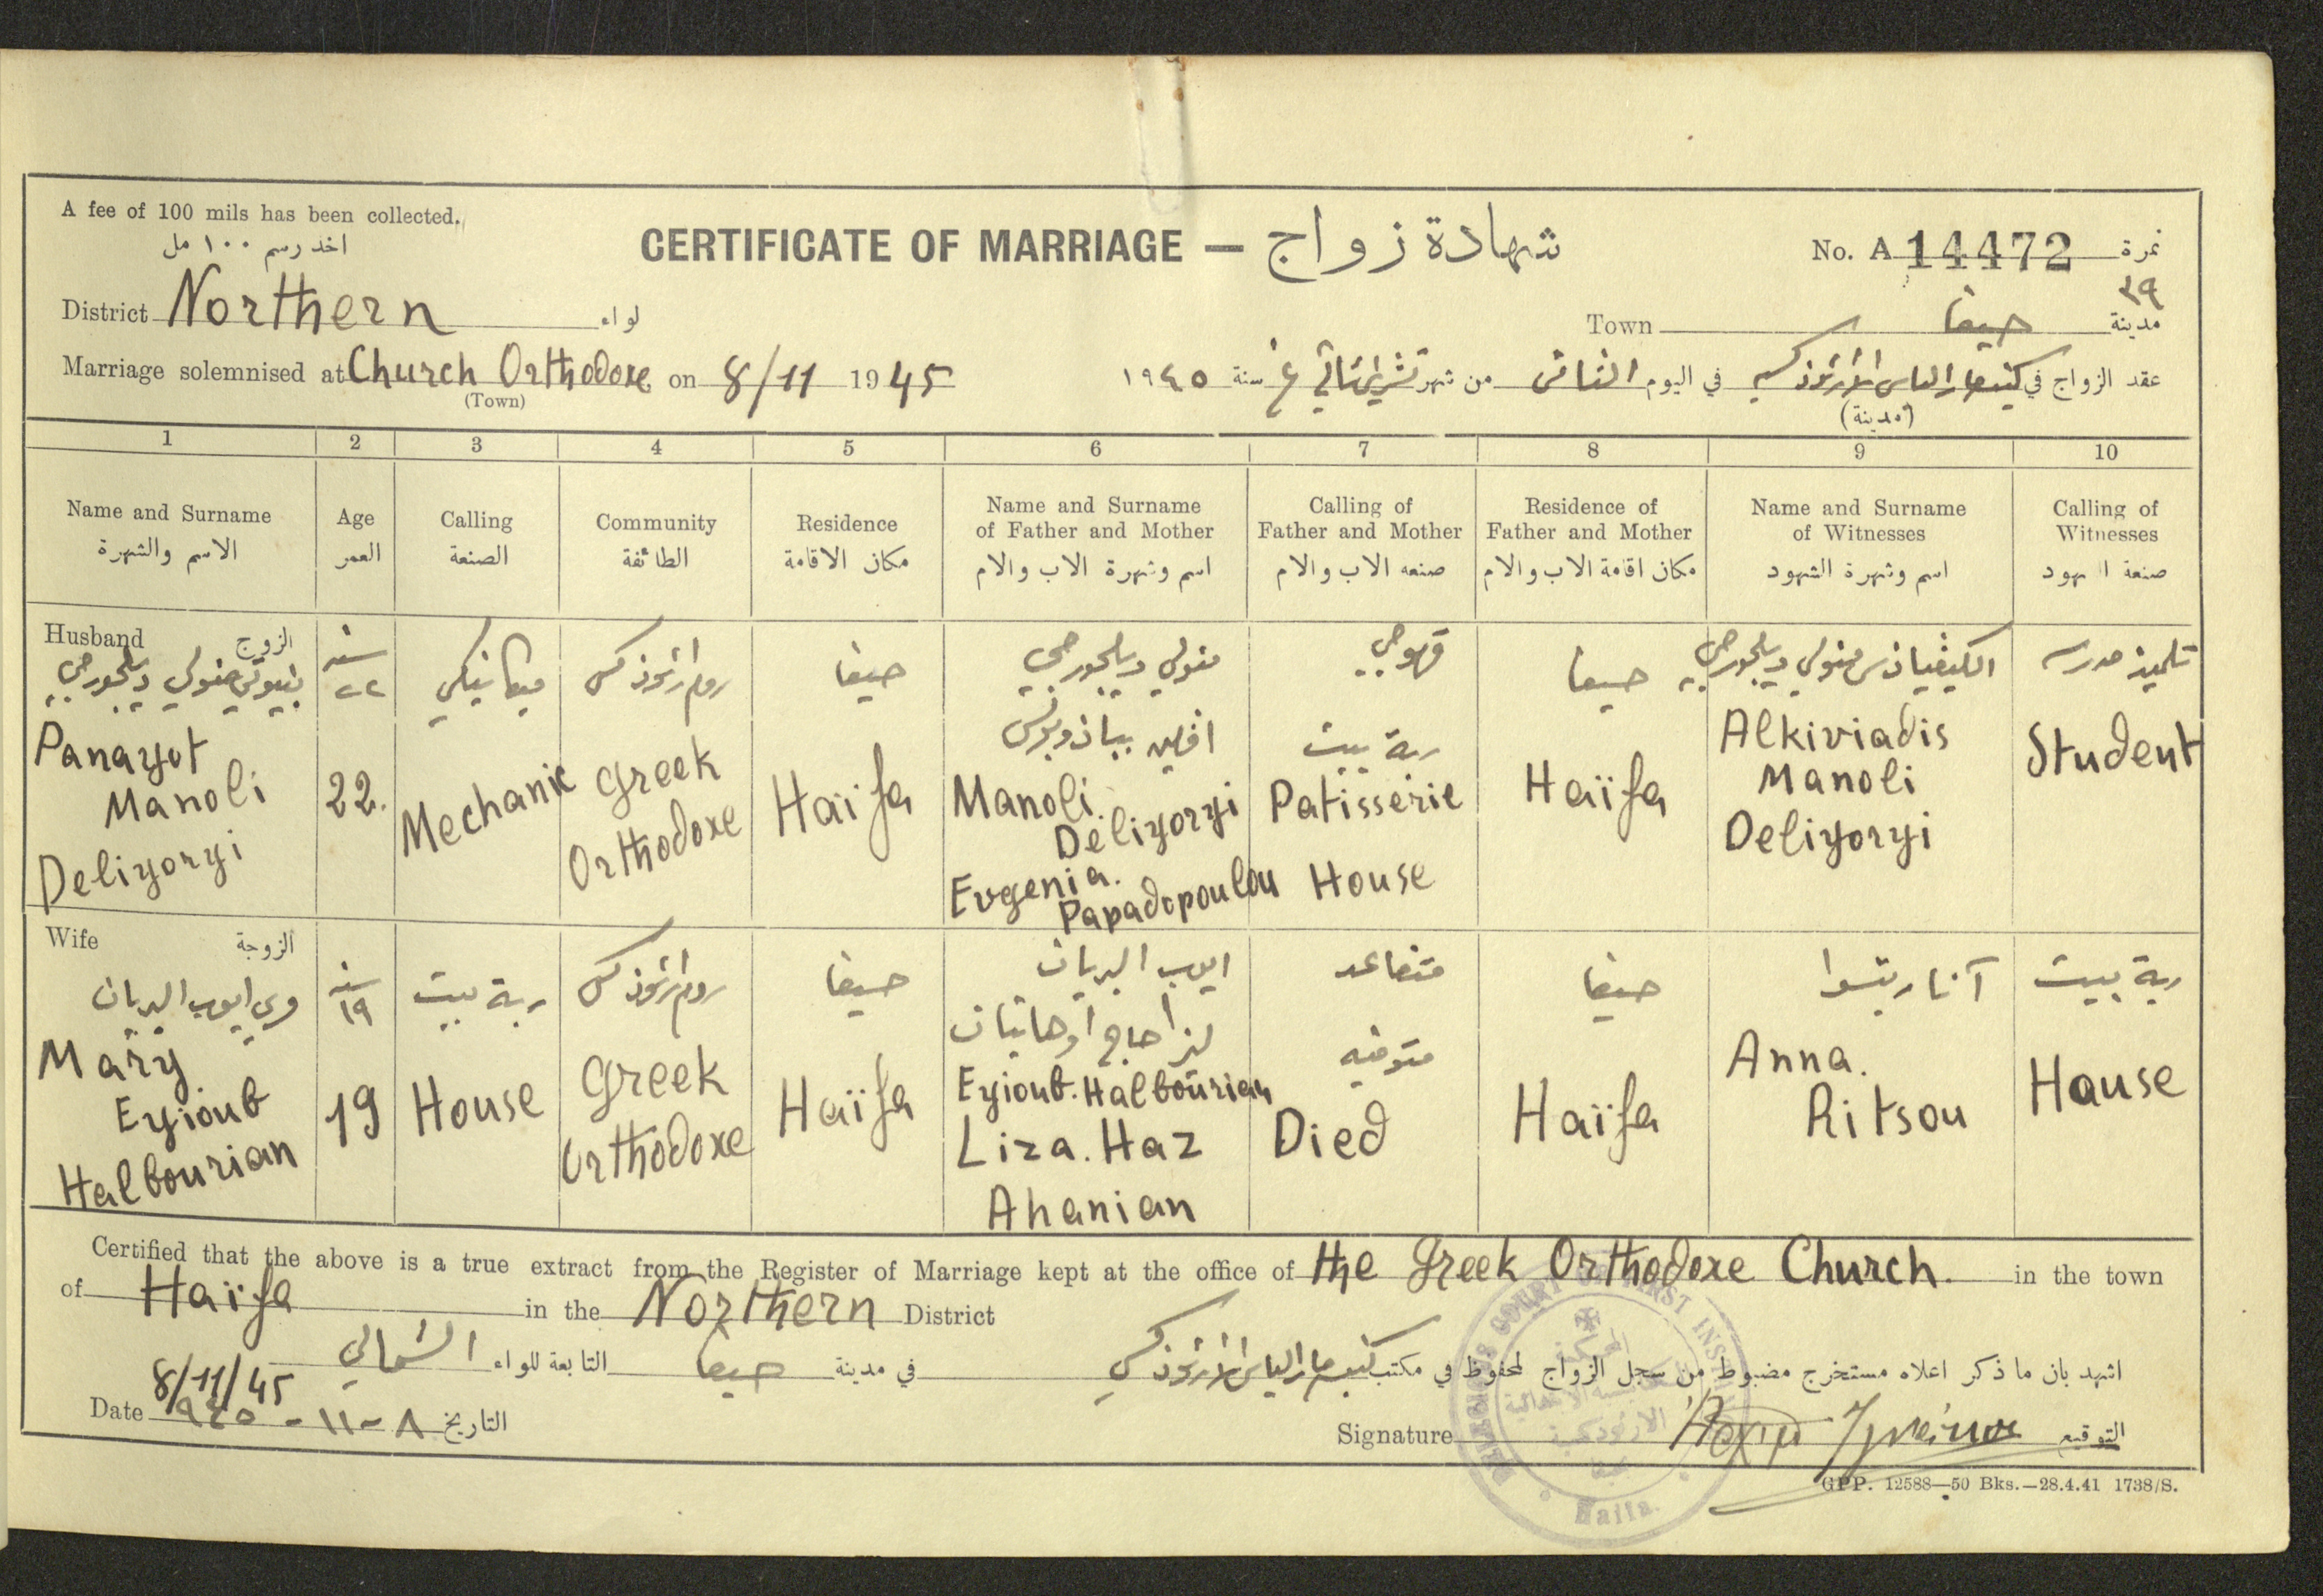 A fee of 100 mils has been collected.
اخذ رسم ١٠٠ مل
CERTIFICATE OF MARRIAGE — شهادة زواج
No. A 14472 نمرة
٣٩
District Northern لواء
Town حيفا مدينة
Marriage solemnised at Church Orthodoxe on 8/11 1945
(Town)
عقد الزواج في كنيسة مار الياس الارثوذكسية في اليوم الثامن من شهر تشرين ثاني غ سنة ١٩٤٥
(مدينة)
1 2 3 4 5 6 7 8 9 10
Name and Surname
الاسم والشهرة
Age
العمر
Calling
الصنعة
Community
الطائفة
Residence
مكان الاقامة
Name and Surname
of Father and Mother
اسم وشهرة الاب والام
Calling of
Father and Mother
صنعه الاب والام
Residence of
Father and Mother
مكان اقامة الاب والام
Name and Surname
of Witnesses
اسم وشهرة الشهود
Calling of
Witnesses
صنعة ا هود
Husband الزوج
بنيوتي منولي ديليجورجي
Panayot
Manoli
Deliyoryi
سنة
٢٢
22.
ميكانيكي
Mechanic
روم ارثوذكس
Greek
Orthodoxe
حيفا
Haïfa
منولي ديليجورجي
Manoli.
Deliyoryi
Evgenia.
Papadopoulou
قهوجي
ربة بيت
Patisserie
House
حيفا
Haïfa
الكيفياذس منولي ديليجورجي
Alkiviadis
Manoli
Deliyoryi
تلميذ مدرسه
Student
Wife الزوجة
مري ايوب البريان
Mary
Eyioub
Halbourian
سنة
١٩
19
ربة بيت
House
روم ارثوذكس
Greek
Orthodoxe
حيفا
Haïfa
ايوب البريان
ليزا حاج اوهانيان
Eyioub. Halbourian
Liza. Haz
Ahanian
متقاعد
متوفيه
Died
حيفا
Haïfa
آنا ريتسوا
Anna.
Ritsou
ربة بيت
Hause
Certified that the above is a true extract from the Register of Marriage kept at the office of the Greek Orthodoxe Church in the town
of Haïfa in the Northern District
اشهد بان ما ذكر اعلاه مستخرج مضبوط من سجل الزواج المحفوظ في مكتب كنيسة مار الياس الارثوذكسي في مدينة حيفا التابعة للواء الشمالي
8/11/45
Date ٨-١١-٩٤٥ التاريخ
Signature التوقيع
RELIGIOUS COURT OF FIRST INST
المحكمة
الارثوذكسية
حيفا
Haifa.
GPP. 12588—50 Bks.—28.4.41 1738/S.